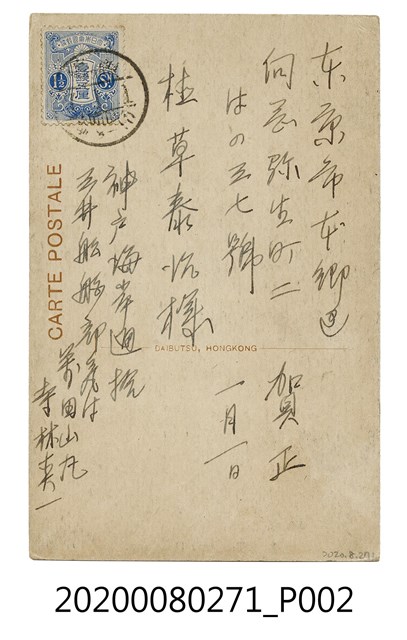 東京市本郷区
向岡弥生町二
はの五七號
桂草泰悦様
賀正
一月一日
神戸海岸通
三井舩舶部
萬田山丸
寺林寿一
CARTE POSTALE
DAIBUTSU, HONGKONG
1½
2020.8.271
20200080271_P002